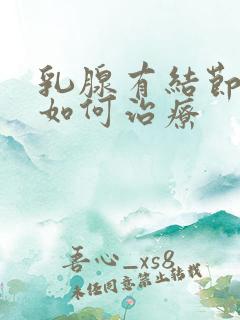 乳腺有結節
如何治療
吾心_xs8
未任同意禁止转载